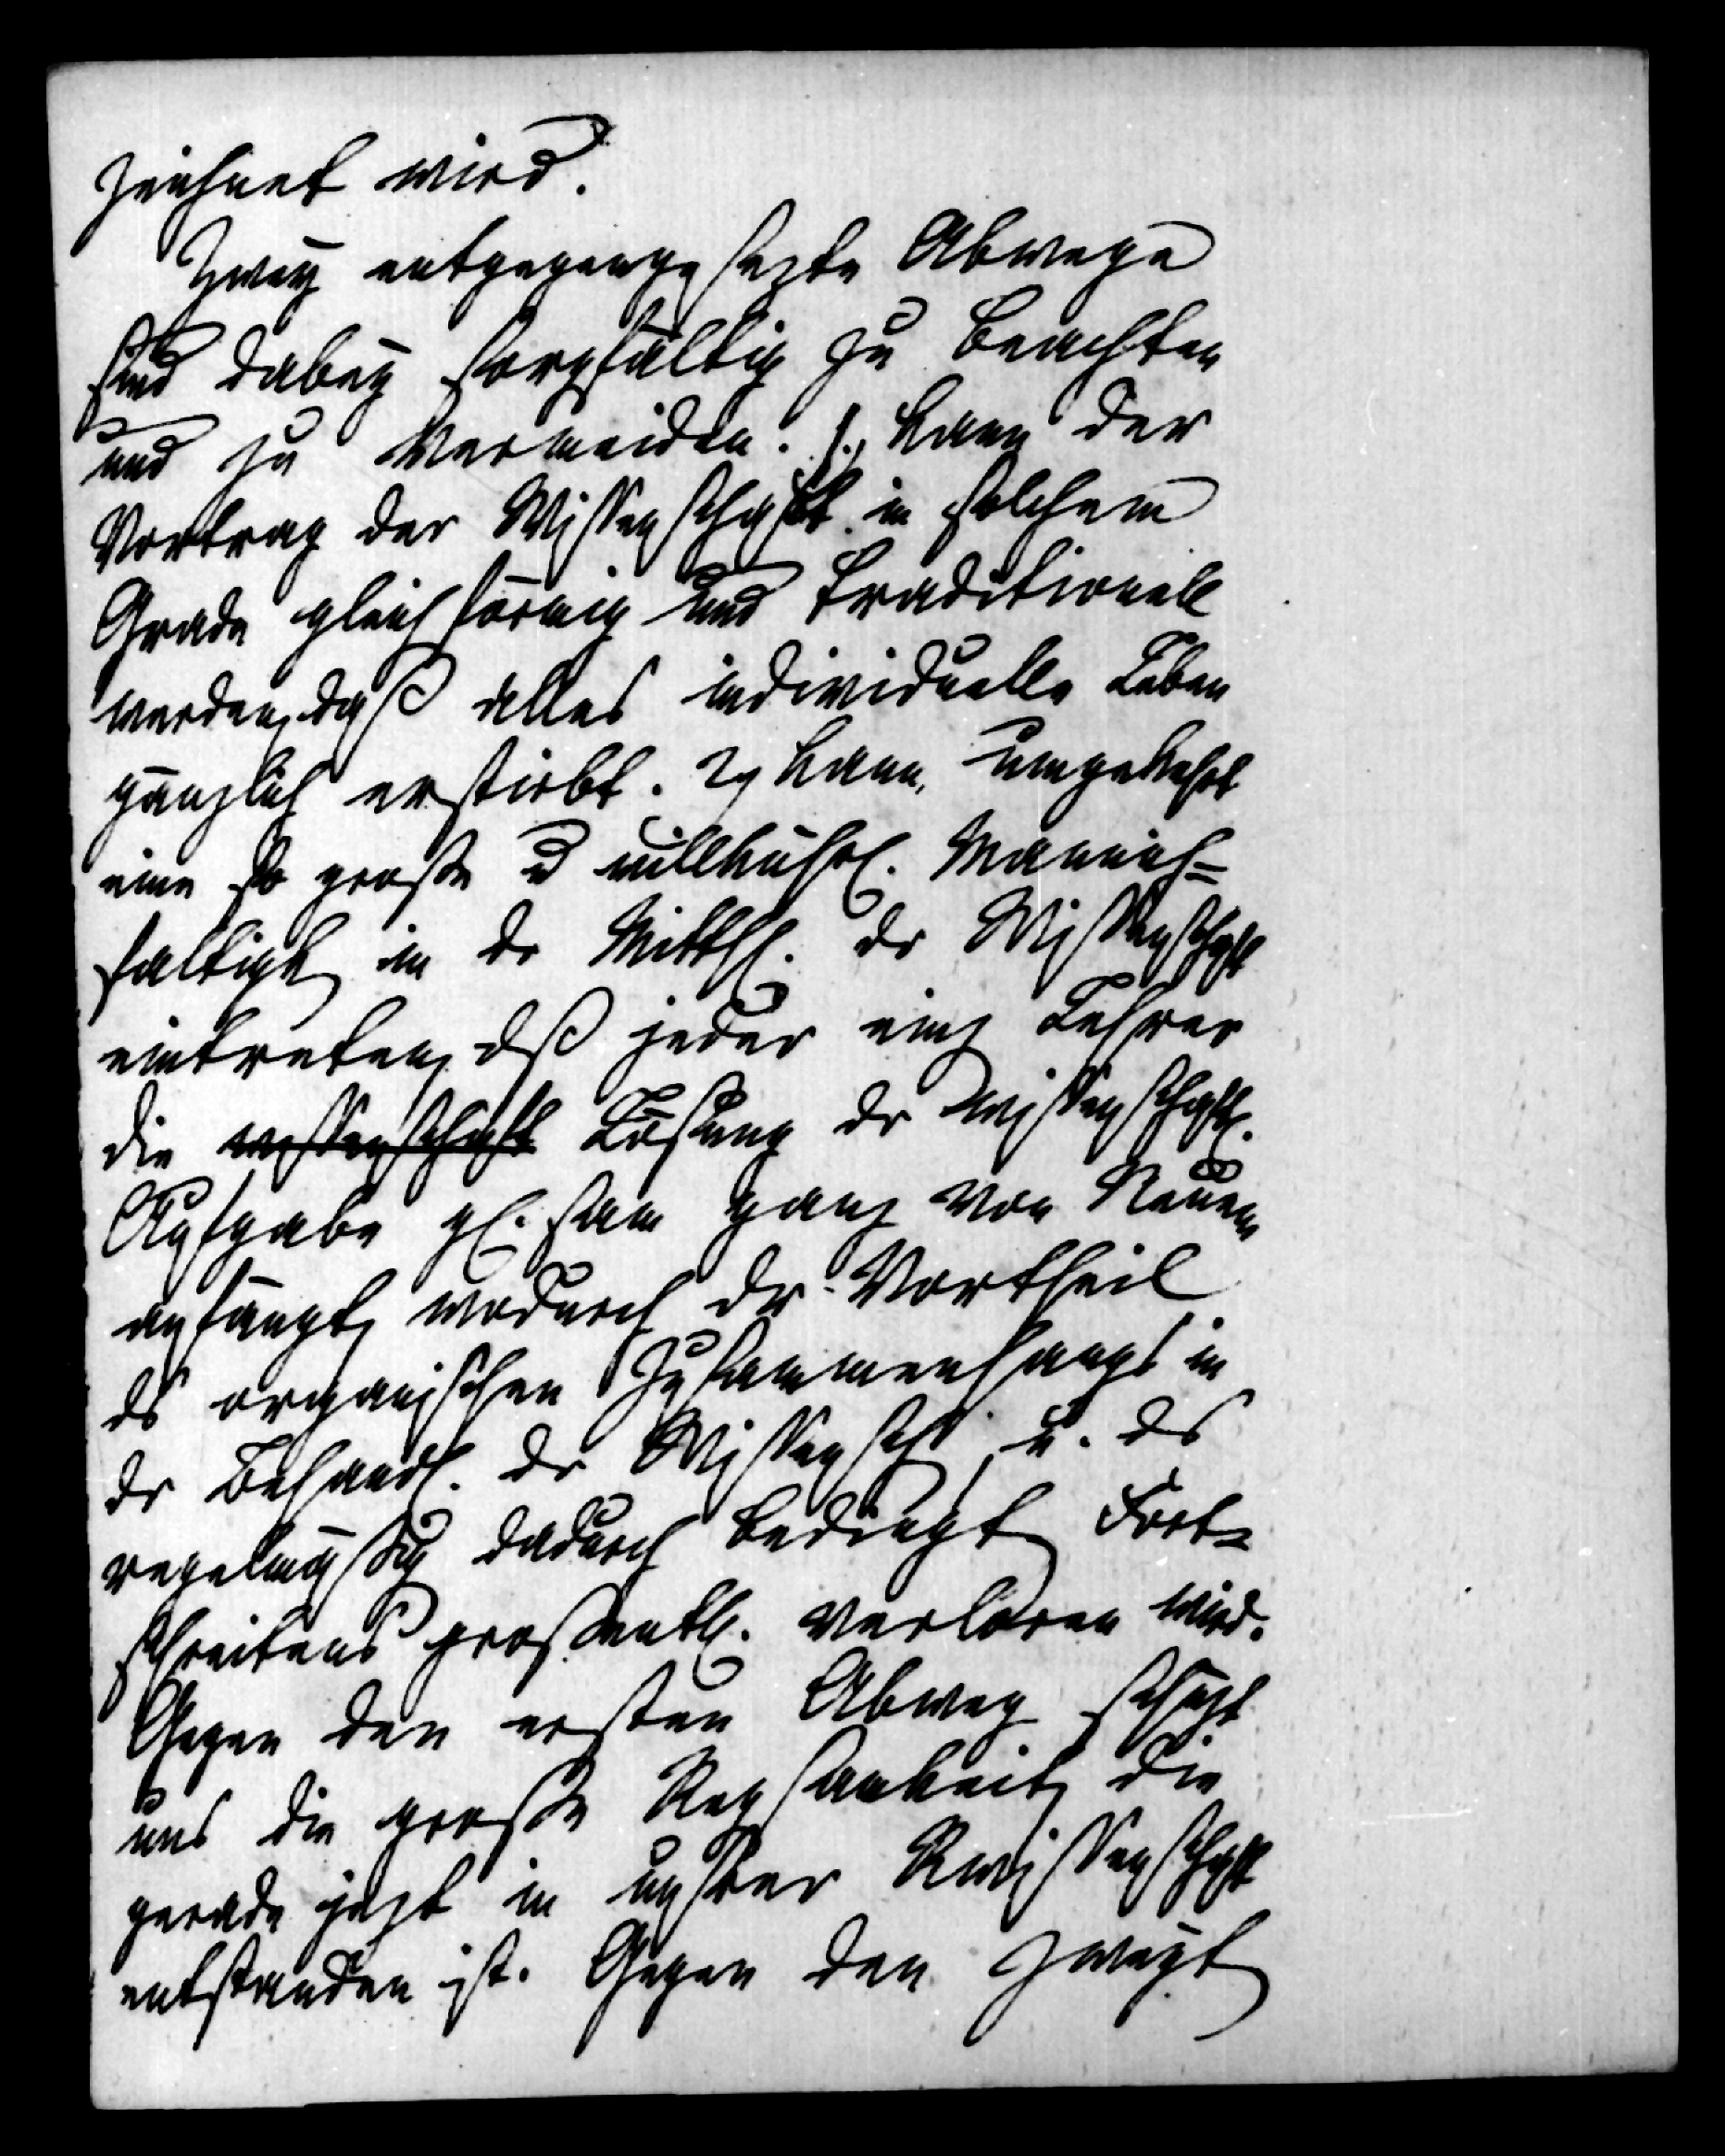 zeichnet wird.
Zwey entgegengesezte Abwege
sind dabey sorgfältig zu beachten
und zu vermeiden. 1., kann der
Vortrag der Wissenschaft in solchem
Grade gleichförmig und traditionell
werden, daß alles individuelle Leben
gänzlich erstirbt. 2, kann umgekehrt
eine so große u willkührl. Mannich=
faltigk in dr Mitthl. dr Wissenschaft
eintreten, dß jeder einz Lehrer
die wissenschaft Lösung dr wissenschaftl.
Aufgabe gl.sam ganz von Neuem
anfängt, wodurch dr Vortheil
ds organischen Zusammenhangs in
dr Behandl. dr Wissensch, u. ds
regelmäßig dadurch bedingt Fort=
schreitens großentl. verloren wird.
Gegen den ersten Abweg schüzt
uns die große Regsamkeit, die
gerade jezt in unsrer Rwissenschaft
entstanden ist. Gegen den zweyt